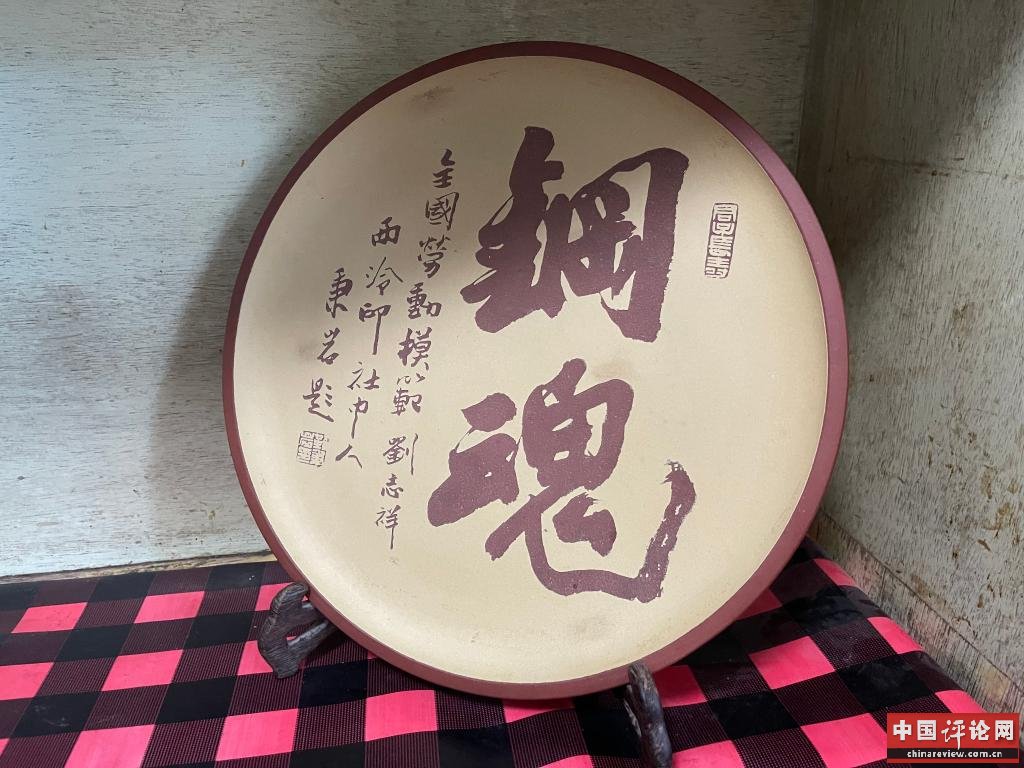 鋼魂
全國勞動模範 劉志祥
西泠印社中人
秉岩题
中国评论网
chinareview.com.cn